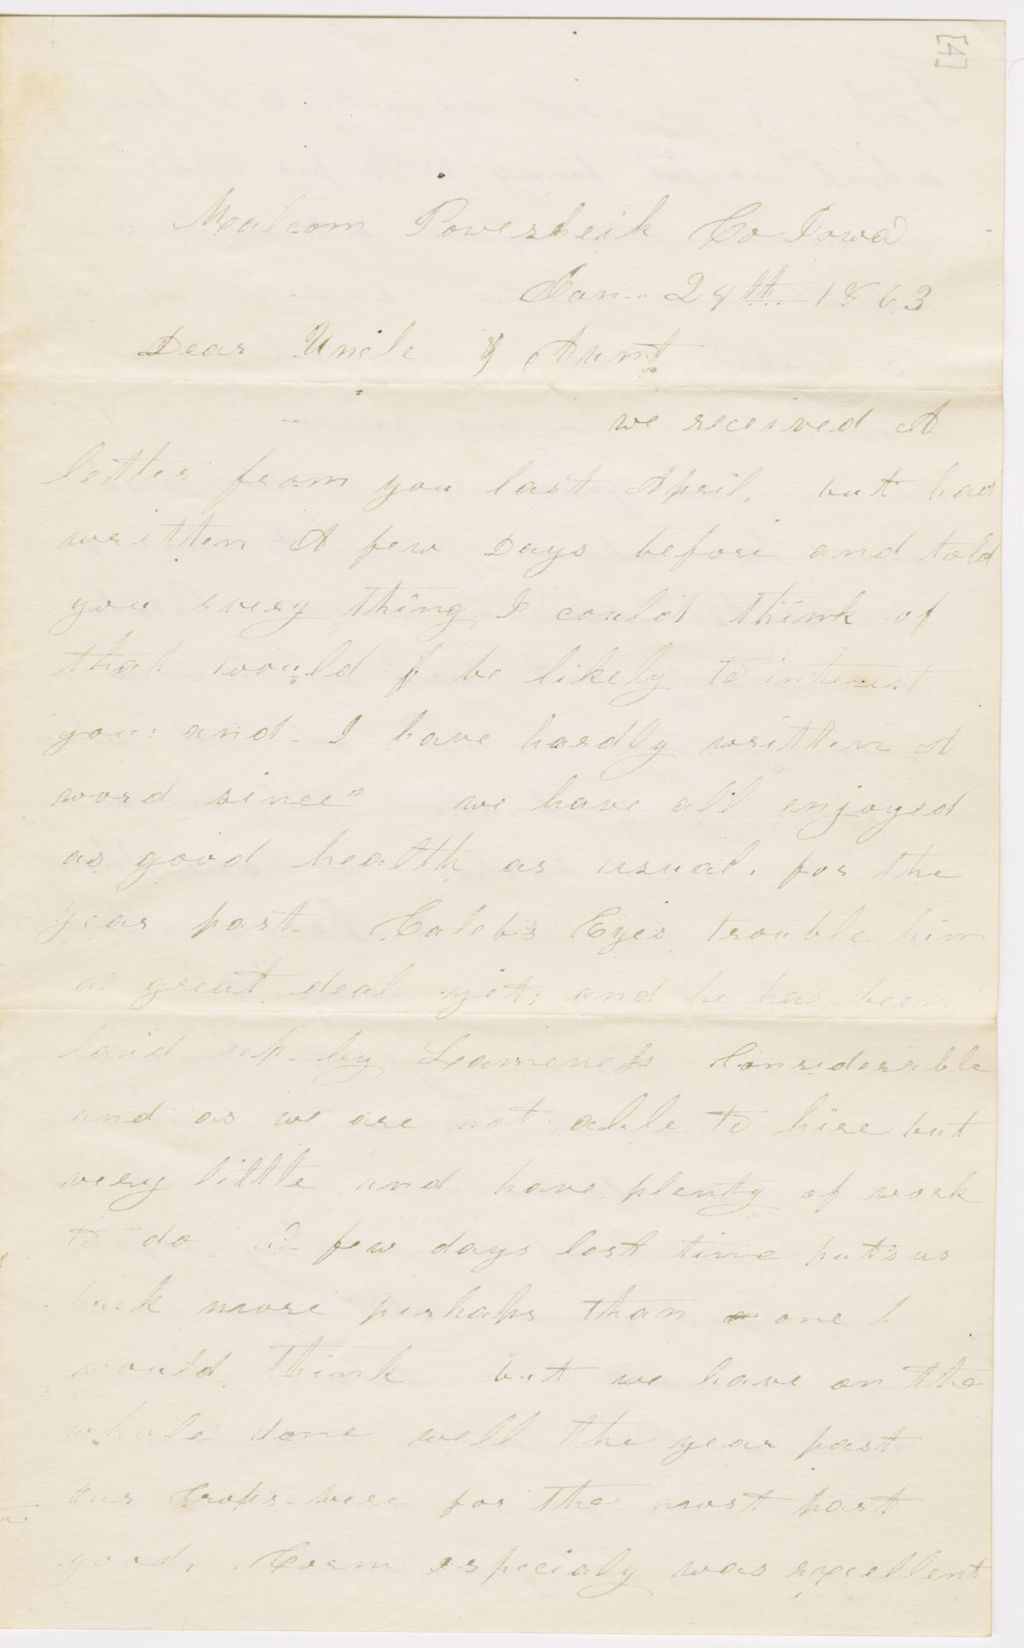 [4]
Malcom Powesheik Co Iowa
Jan. 28th 1863
Dear Uncle & Aunt
we received A
letter from you last April, but had
written A few Days before and told
you every thing I could think of
that would be likely to interest
you: and I have hardly written A
word since" we have all enjoyed
as good health as usual. for the
year past. Calebs Eyes trouble him
a great deal yet; and he has been
laid up by Lameness Considerable
and as we are not able to hire but
very little and have plenty of work
to do a few days lost time puts us
back more perhaps than one
would think but we have on the
whole done well the year past
our Crops were for the most part
good. Corn especialy was excellent